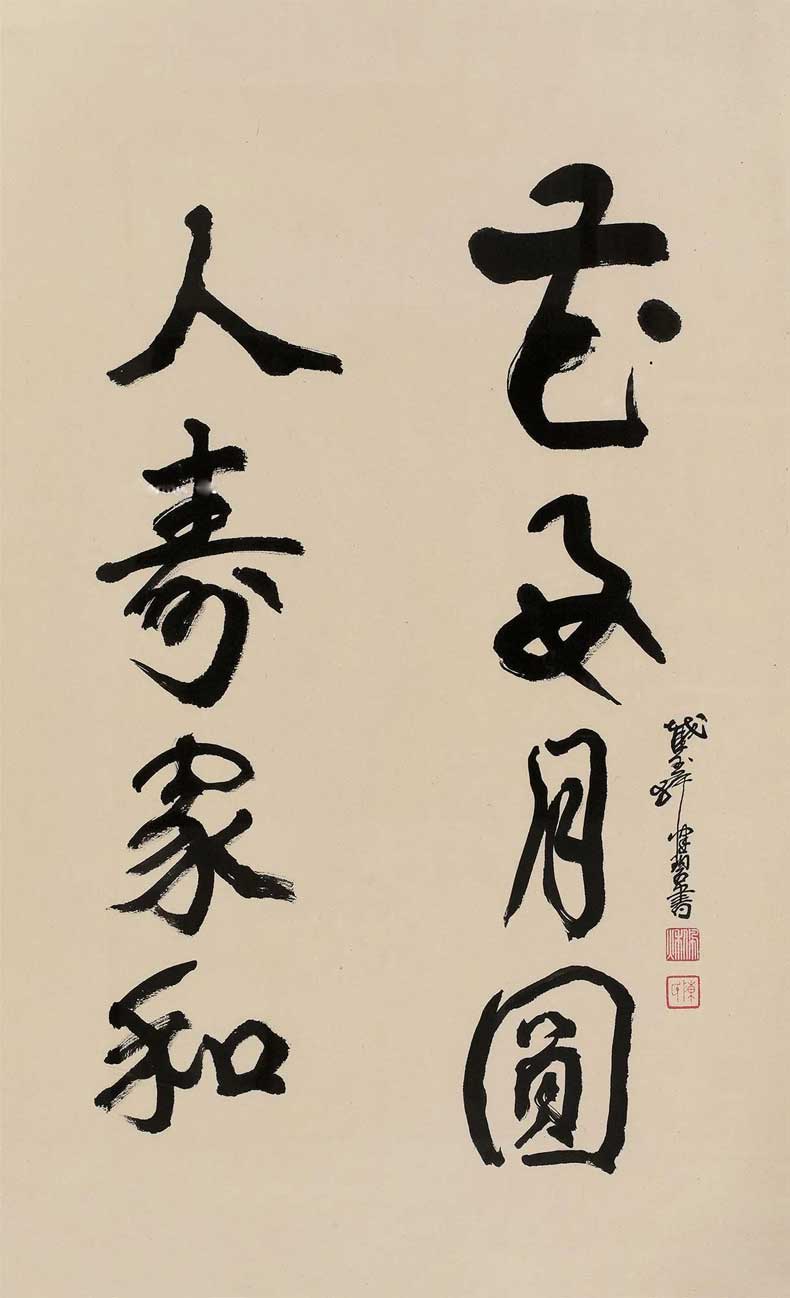 花好月圓
人壽家和